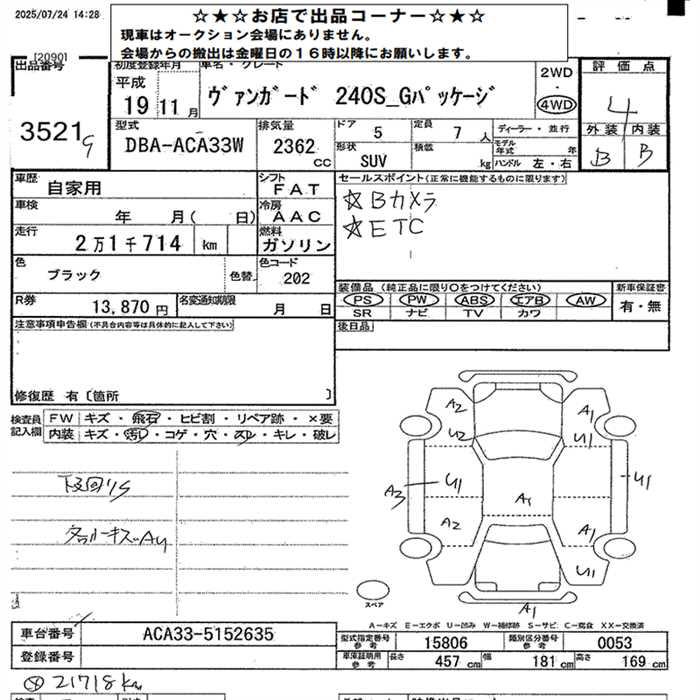 2025/07/24 14:28
☆★☆お店で出品コーナー☆★☆
現車はオークション会場にありません。
会場からの搬出は金曜日の16時以降にお願いします。
[2090]
出品番号
3521
初度登録年月
平成
19年 11月
車名・グレード
ヴァンガード 240S_Gパッケージ
2WD
・
4WD
評価点
4
外装 内装
B B
型式
DBA-ACA33W
排気量
2362 cc
ドア 5
定員 7 人
形状 SUV
積載 kg
ディーラー・並行
モデル年式 年
ハンドル 左・右
車歴 自家用
シフト FAT
車検 年 月( 日)
冷房 AAC
走行 2万1千714 km
燃料 ガソリン
色 ブラック 色替
色コード 202
R券 13,870円
名変通知期限 月 日
セールスポイント(正常に機能するものに限ります)
☆Bカメラ
☆ETC
装備品 (純正品に限り○をつけてください)
PS PW ABS エアB AW
SR ナビ TV カワ
新車保証書
有・無
後日品
注意事項申告欄(不具合内容等は具体的に記入して下さい)
修復歴 有〔箇所 〕
検査員記入欄
FW キズ・飛石・ヒビ割・リペア跡・×要
内装 キズ・汚レ・コゲ・穴・スレ・キレ・破レ
下回りS
A2 A1
U2 U1
A3 U1 A1 U1
A2 A1
U1
A1
スペア
A-キズ E-エクボ U-凹み W-補修跡 S-サビ C-腐食 XX-交換済
車台番号 ACA33-5152635
登録番号
型式指定番号 参考 15806
類別区分番号 参考 0053
車庫証明用 参考 長さ 457 cm 幅 181 cm 高さ 169 cm
21718km